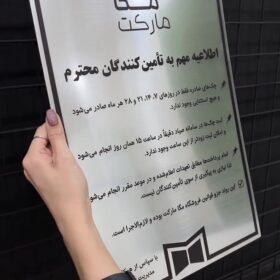 مگا
مارکت
اطلاعیه مهم به تأمین‌کنندگان محترم
چک‌های صادره فقط در روزهای ۷، ۱۴، ۲۱ و ۲۸ هر ماه صادر می‌شود
و هیچ استثنایی وجود ندارد.
ثبت چک‌ها در سامانه صیاد دقیقاً در ساعت ۱۵ همان روز انجام می‌شود
و امکان ثبت زودتر از این ساعت وجود ندارد.
تمام پرداخت‌ها مطابق تعهدات اعلام‌شده و در موعد مقرر انجام می‌شود
نیازی به پیگیری از سوی تأمین‌کنندگان نیست.
این روند جزو قوانین فروشگاه مگا مارکت بوده و لازم‌الاجرا است.
با سپاس از
مدیریت